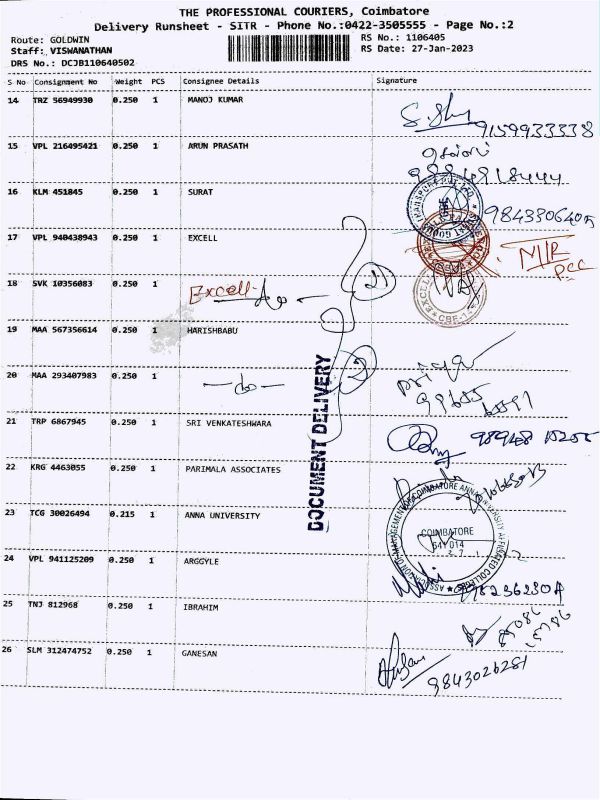 THE PROFESSIONAL COURIERS, Coimbatore
Delivery Runsheet - SITR - Phone No.:0422-3505555 - Page No.:2
Route: GOLDWIN
RS No.: 1106405
Staff: VISWANATHAN
RS Date: 27-Jan-2023
DRS No.: DCJB110640502
S No Consignment No Weight PCS Consignee Details Signature
14 TRZ 56949930 0.250 1 MANOJ KUMAR
9159933338
15 VPL 216495421 0.250 1 ARUN PRASATH
16 KLM 451845 0.250 1 SURAT
9843306405
17 VPL 940438943 0.250 1 EXCELL
18 SVK 10356083 0.250 1 Excell
19 MAA 567356614 0.250 1 HARISHBABU
20 MAA 293407983 0.250 1
DOCUMENT DELIVERY
21 TRP 6867945 0.250 1 SRI VENKATESHWARA
22 KRG 4463055 0.250 1 PARIMALA ASSOCIATES
23 TCG 30026494 0.215 1 ANNA UNIVERSITY
COIMBATORE
641 014
24 VPL 941125209 0.250 1 ARGGYLE
25 TNJ 812968 0.250 1 IBRAHIM
26 SLM 312474752 0.250 1 GANESAN
9843026281